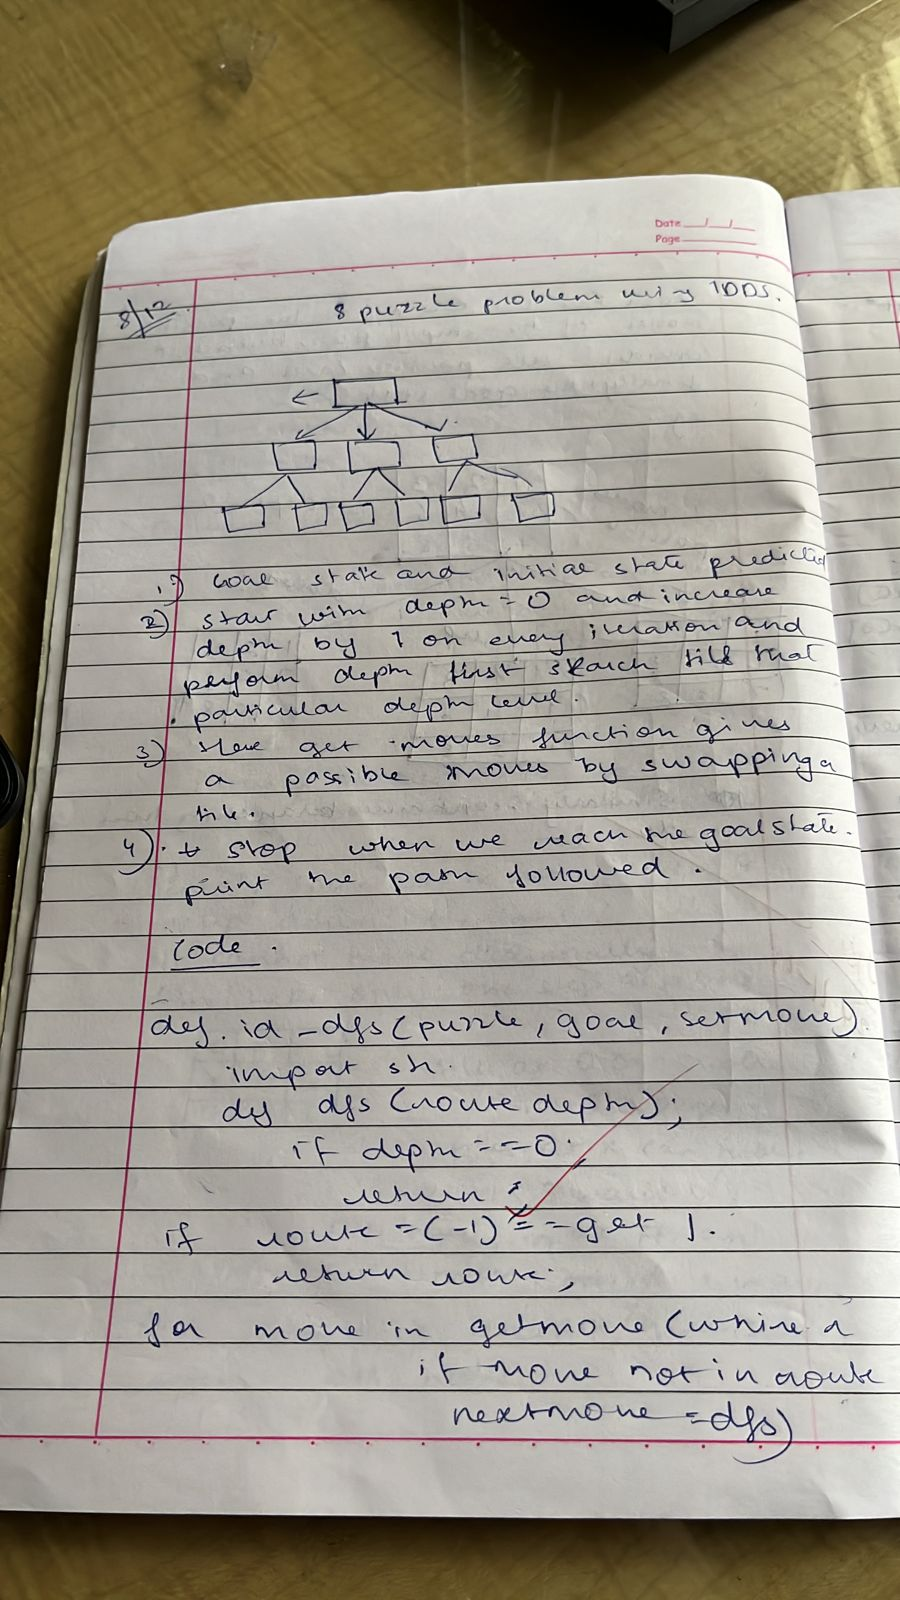 Date __/__/__
Page
8/12
8 puzzle problem using IDDS.
1) Goal state and initial state predicted
2) start with depth = 0 and increase
depth by 1 on every iteration and
perform depth first search till that
particular depth level.
3) Here get moves function gives
a possible moves by swapping a
tile.
4) stop when we reach the goal state.
print the path followed.
Code.
def. id_dfs(puzzle, goal, getmove)
import
def dfs (route depth);
if depth == 0
return
if route = (-1) == get
return route;
for move in getmove (
if move not in route
nextmove = dfs)